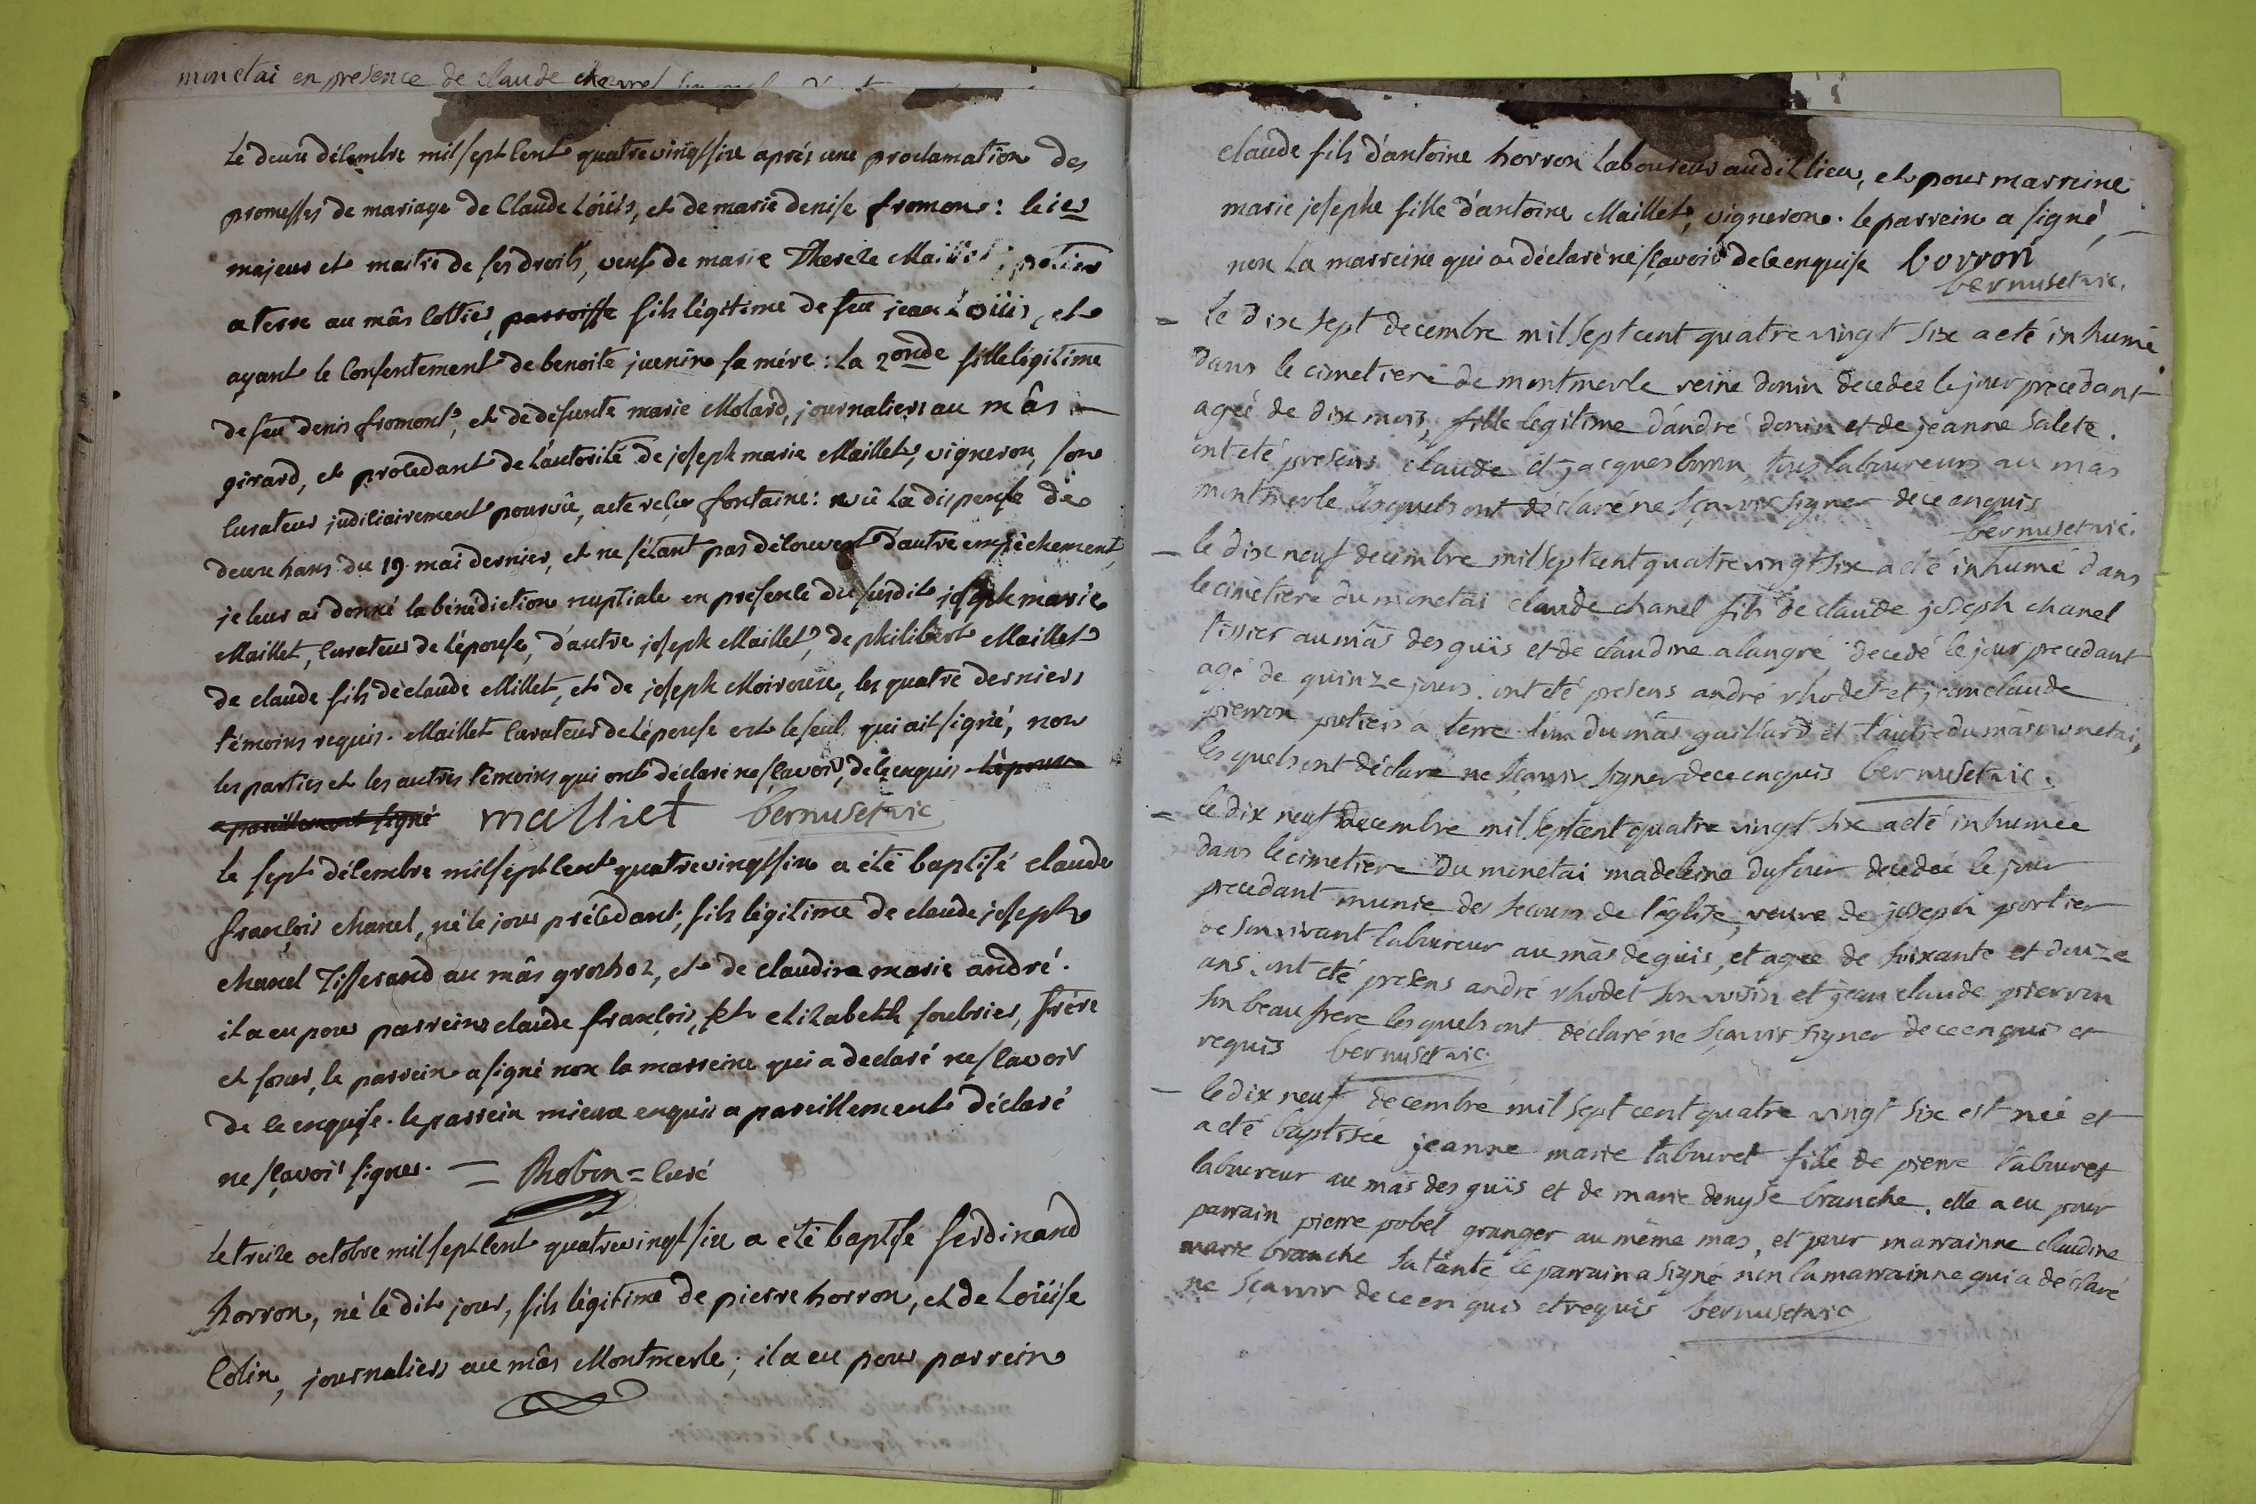 monetai en presence de claude
Le deux décembre mil sept cent quatrevingt six après une proclamation des
promesses de mariage de Claude Loüis, et de marie denise fromont: le ier
majeur et maitre de ses droits, veuf de marie Thereze Maillet, potier
a terre au mâs Cottier, parroisse fils légitime de feu jean Loüis, et
ayant le Consentement de benoite juenin sa mére: la 2onde fille légitime
de feu denis fromont, et de défunte marie Molard, journaliers au mâs
girard, et procedant de l'autorité de joseph marie Maillet, vigneron, son
Curateur judiciairement pourvû, acte reçu fontaine: vû la dispense de
deux bans du 19 mai dernier, et ne s'étant pas découvert d'autre empêchement,
je leur ai donné la bénédiction nuptiale en présence du susdit joseph marie
Maillet, Curateur de l'épouse, d'autre joseph Maillet, de philibert Maillet
de claude fils de claude Millet, et de joseph Moiroux, les quatre derniers
témoins requis. Maillet Curateur de l'épouse est le seul qui ait signé, non
les parties et les autres témoins qui ont déclaré ne sçavoir, de ce enquis l'époux
a pareillement signé malliet bernuset vic
Le sept décembre mil sept cent quatrevingt six a été baptisé claude
françois chanel, né le jour précédant, fils légitime de claude joseph
chanel Tisserand au mâs groshoz, et de claudine marie andré.
il a eu pour parrein claude françois, et elizabeth soubrier, frére
et sœur, le parrein a signé non la marreine qui a déclaré ne sçavoir
de ce enquise. le parrein mieux enquis a pareillement déclaré
ne sçavoir signer. = Robin = Curé
Le treize octobre mil sept cent quatrevingt six a été baptisé ferdinand
horron, né le dit jour, fils légitime de pierre horron, et de Loüise
Colin, journaliers au mâs Montmerle; il a eu pour parrein
claude fils d'antoine horron laboureur audit lieu, et pour marreine
marie josephe fille d'antoine Maillet, vigneron. le parrein a signé,
non la marreine qui a déclaré ne sçavoir de ce enquise borron
bernuset vic.
= le dix sept decembre mil sept cent quatre vingt six a eté inhumé
dans le cimetiere de montmerle reine donin decedée le jour precedant
agée de dix mois, fille legitime d'andré donin et de jeanne salete.
ont eté presens claude et jacques tous laboureurs au mas
montmerle lesquels ont déclaré ne sçavoir signer de ce anquis
bernuset vic.
_ le dix neuf decembre mil sept cent quatre vingt six a eté inhumé dans
le cimetiere du monetai claude chanel fils de claude joseph chanel
tissier au mas des guïs et de claudine alangré decedé le jour precedant
agé de quinze jours. ont eté presens andré rhodet et jean claude
pierron potiers a terre l'un du mas gaillard et l'autre du mas monetai,
lesquels ont déclaré ne sçavoir signer de ce enquis bernuset vic.
= le dix neuf decembre mil sept cent quatre vingt six a eté inhumée
dans le cimetiere du monetai madeleine dufour decedée le jour
precedant munie des secours de l'église, veuve de joseph portier
de son vivant laboureur au mas de guis, et agée de soixante et douze
ans. ont eté presens andré rhodet son voisin et jean claude pierron
son beau frere lesquels ont déclaré ne sçavoir signer de ce enquis et
requis bernuset vic.
_ le dix neuf decembre mil sept cent quatre vingt six est née et
a eté baptisée jeanne marie tabouret fille de pierre tabouret
laboureur au mas des guïs et de marie denyse branche. elle a eu pour
parrain pierre pobel granger au même mas, et pour marrainne claudine
marie branche sa tante le parrain a signé non la marrainne qui a déclaré
ne sçavoir de ce en quis et requis bernuset vic